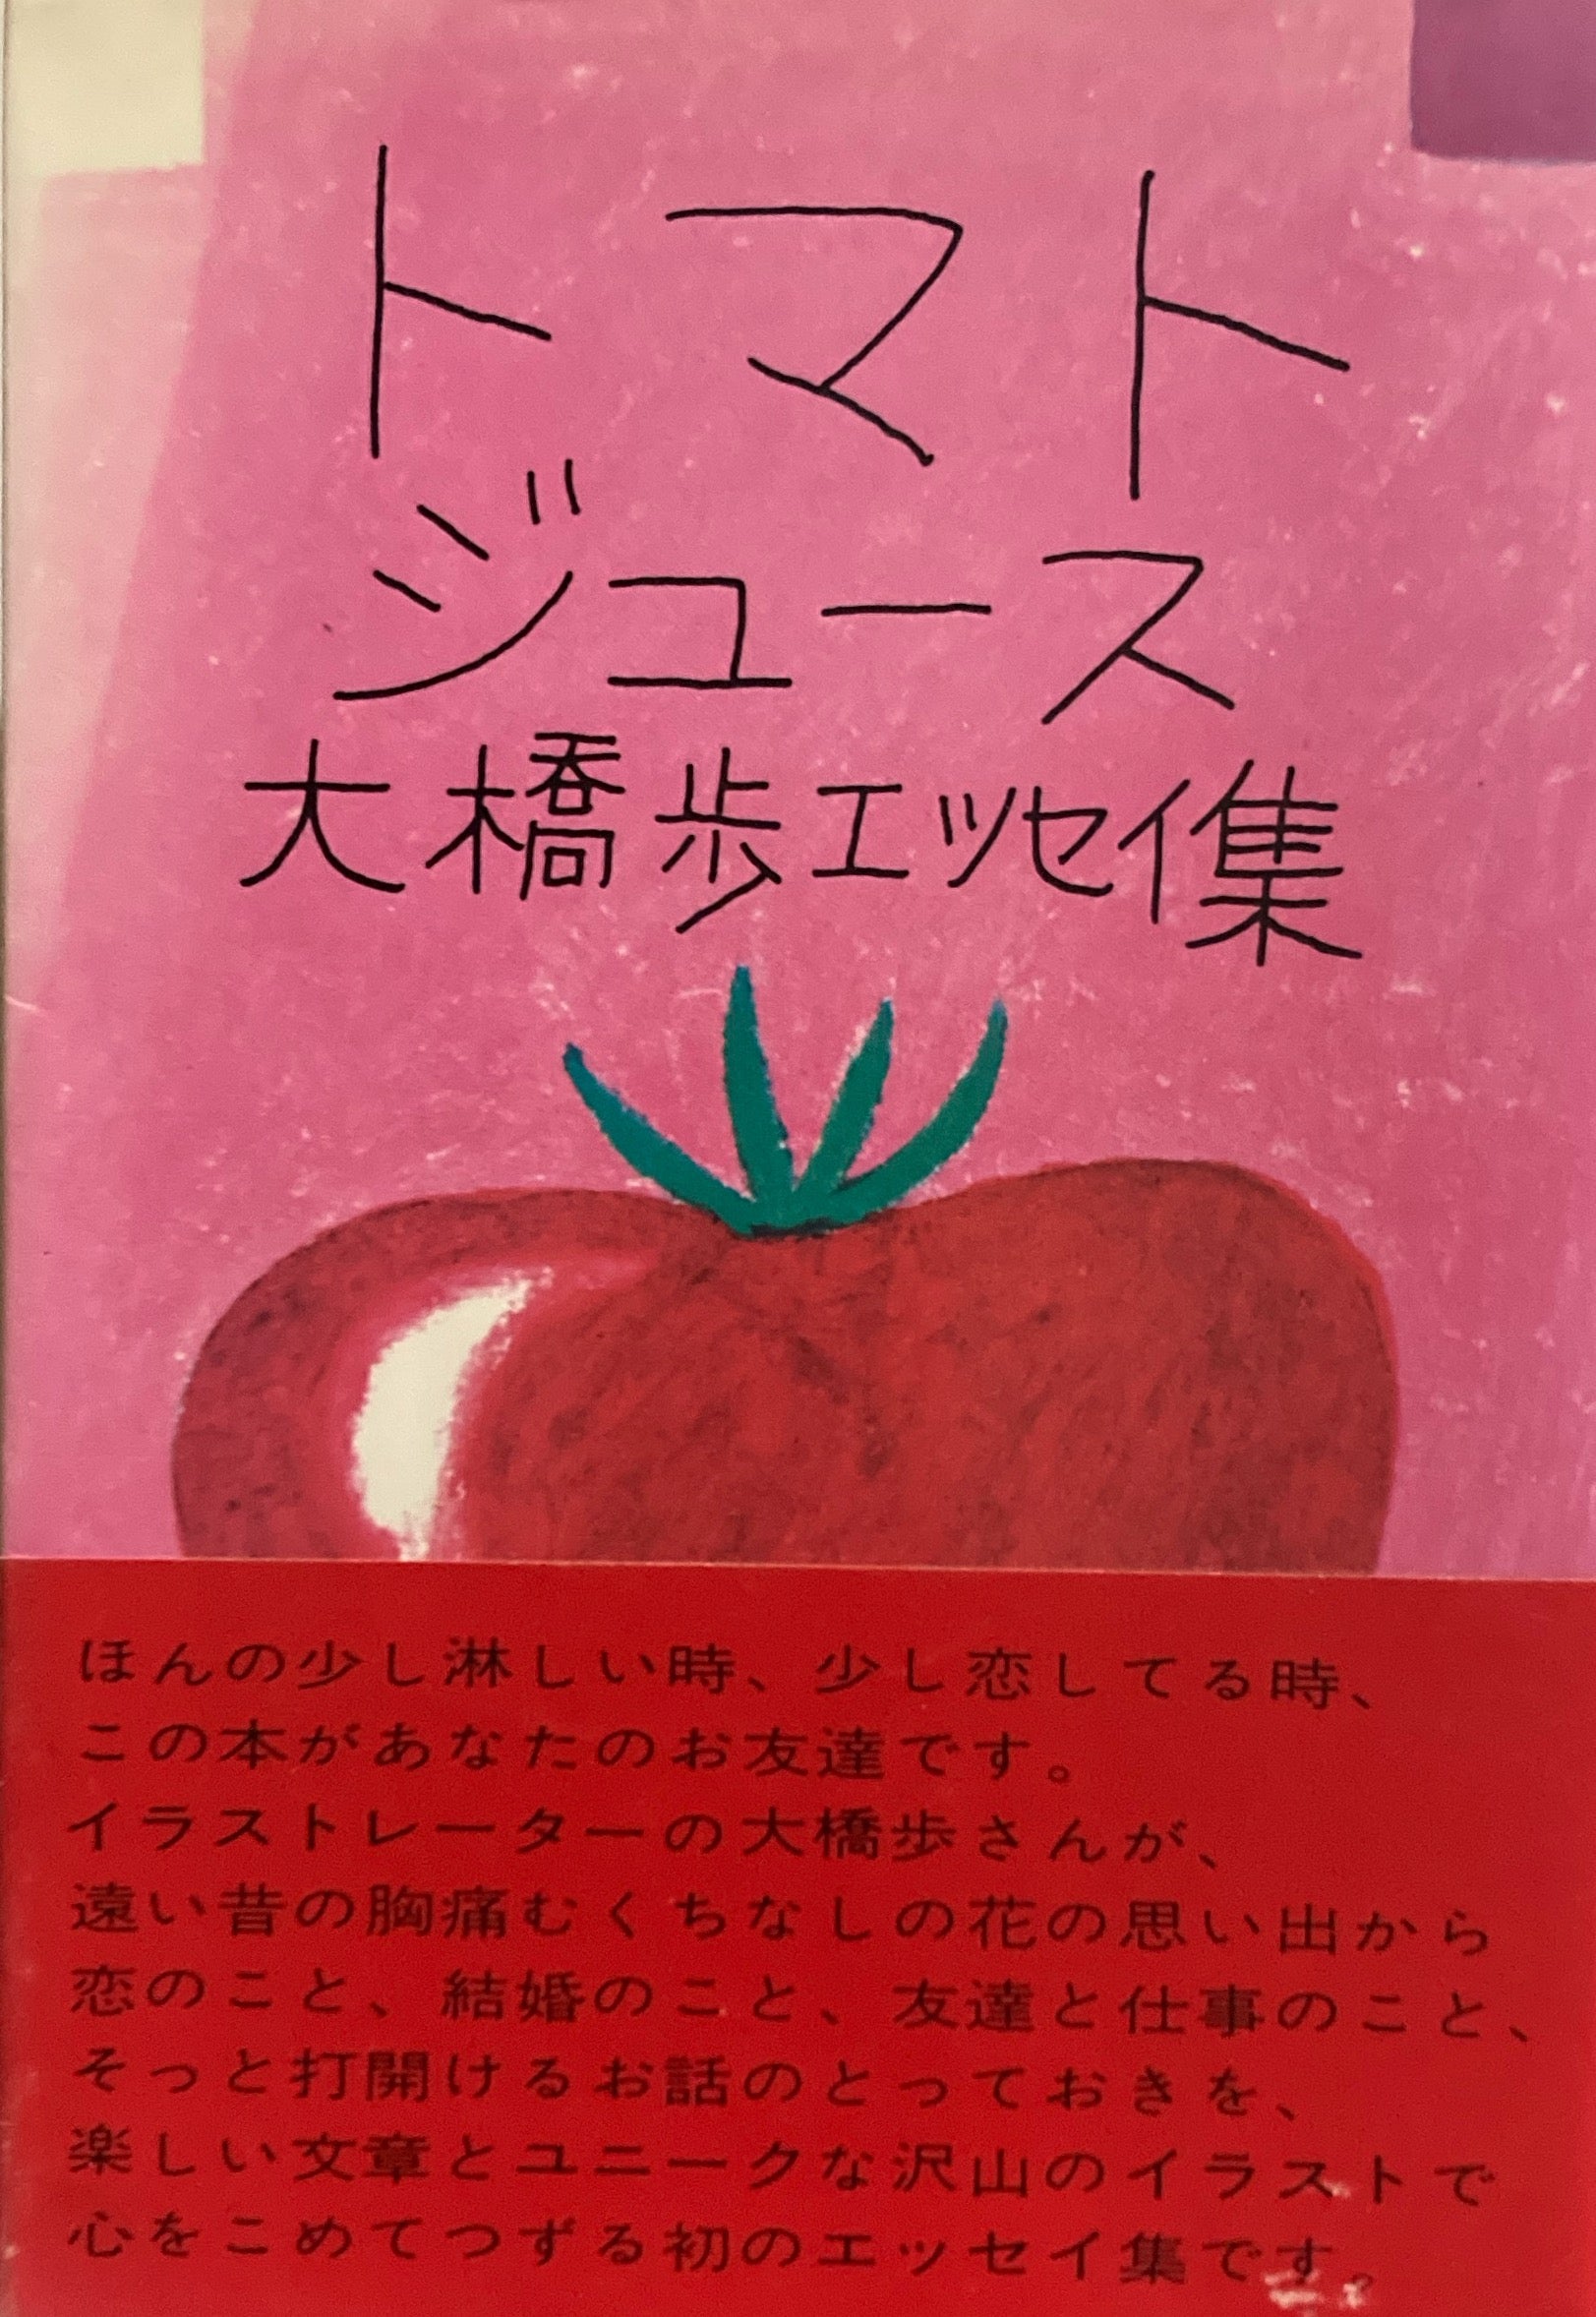 トマト
ジュース
大橋歩エッセイ集
ほんの少し淋しい時、少し恋してる時、
この本があなたのお友達です。
イラストレーターの大橋歩さんが、
遠い昔の胸痛むくちなしの花の思い出から
恋のこと、結婚のこと、友達と仕事のこと、
そっと打開けるお話のとっておきを、
楽しい文章とユニークな沢山のイラストで
心をこめてつずる初のエッセイ集です。